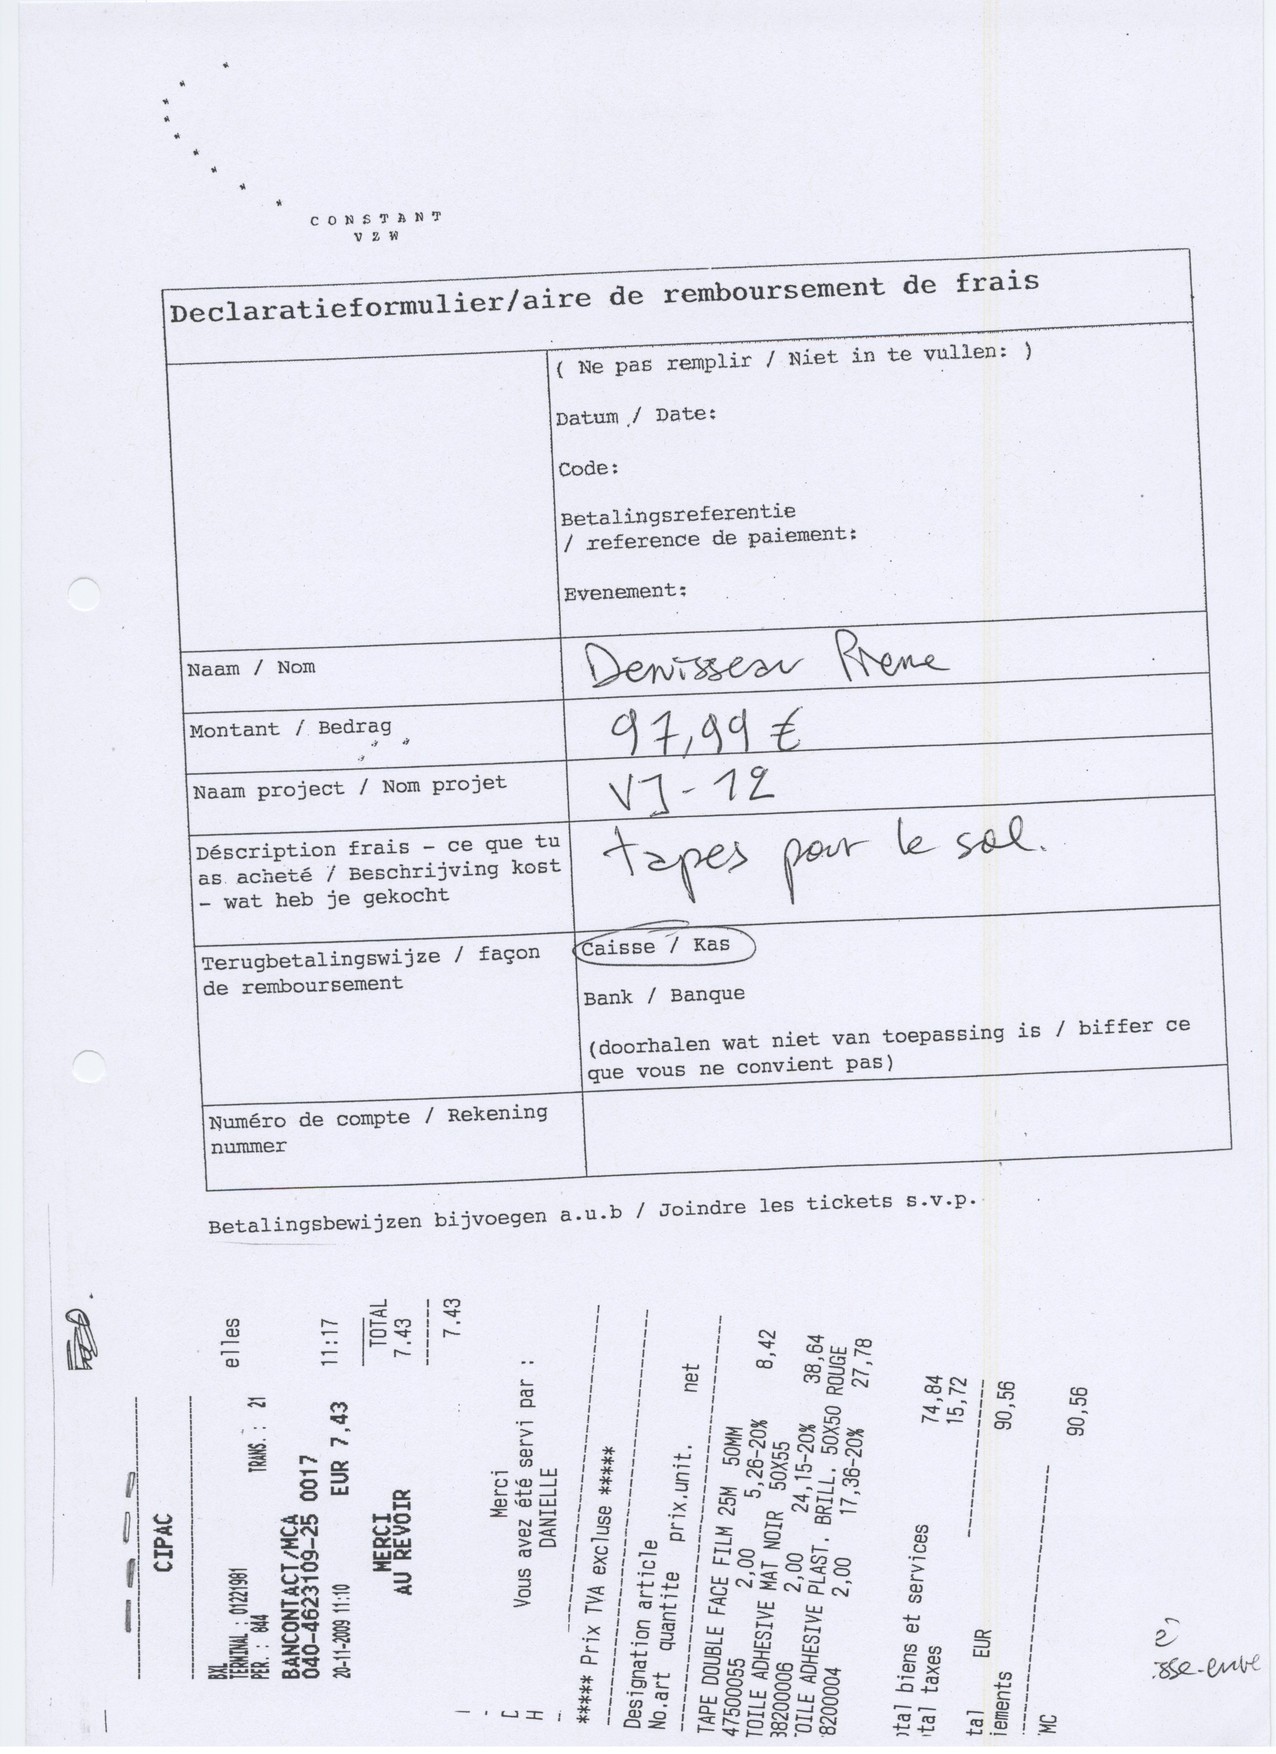 CONSTANT
VZW
Declaratieformulier/aire de remboursement de frais
( Ne pas remplir / Niet in te vullen: )
Datum / Date:
Code:
Betalingsreferentie
/ reference de paiement:
Evenement:
Naam / Nom
Denisseau
Montant / Bedrag
97,99 €
Naam project / Nom projet
VJ-12
Déscription frais - ce que tu
as acheté / Beschrijving kost
- wat heb je gekocht
tapes pour le sol.
Terugbetalingswijze / façon
de remboursement
Caisse / Kas
Bank / Banque
(doorhalen wat niet van toepassing is / biffer ce
que vous ne convient pas)
Numéro de compte / Rekening
nummer
Betalingsbewijzen bijvoegen a.u.b / Joindre les tickets s.v.p.
CIPAC
BXL elles
TERMINAL : 01221981
PER. : 844 TRANS. : 21
BANCONTACT/MCA
040-4623109-25 0017
20-11-2009 11:10 EUR 7,43 11:17
MERCI
AU REVOIR
TOTAL
7.43
7.43
Merci
Vous avez été servi par :
DANIELLE
***** Prix TVA excluse *****
Designation article
No.art quantite prix.unit. net
TAPE DOUBLE FACE FILM 25M 50MM
47500055 2,00 5,26-20% 8,42
TOILE ADHESIVE MAT NOIR 50X55
38200006 2,00 24,15-20% 38,64
OILE ADHESIVE PLAST. BRILL. 50X50 ROUGE
8200004 2,00 17,36-20% 27,78
tal biens et services 74,84
tal taxes 15,72
tal EUR 90,56
iements
MC 90,56